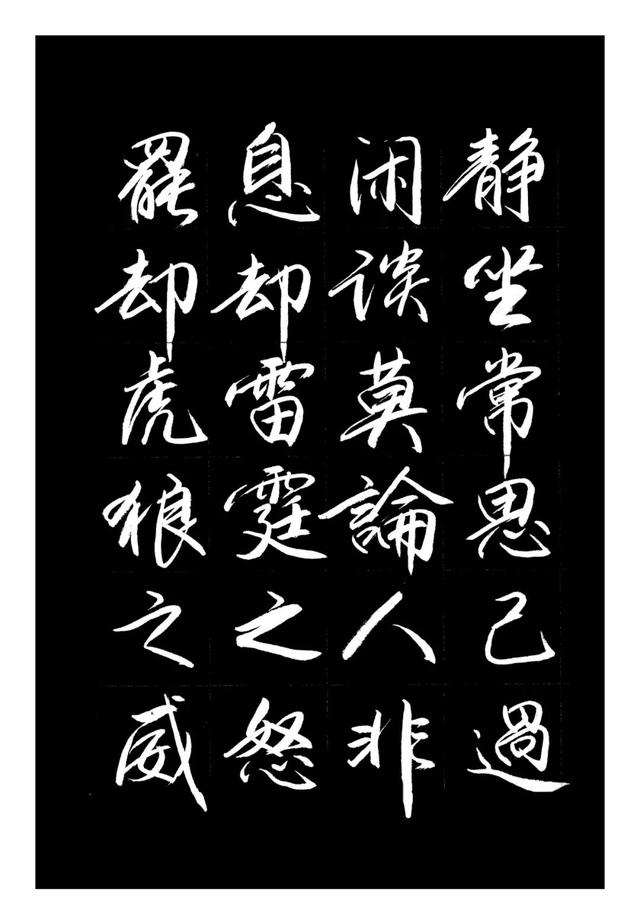 静坐常思己過
闲谈莫論人非
息却雷霆之怒
罷却虎狼之威